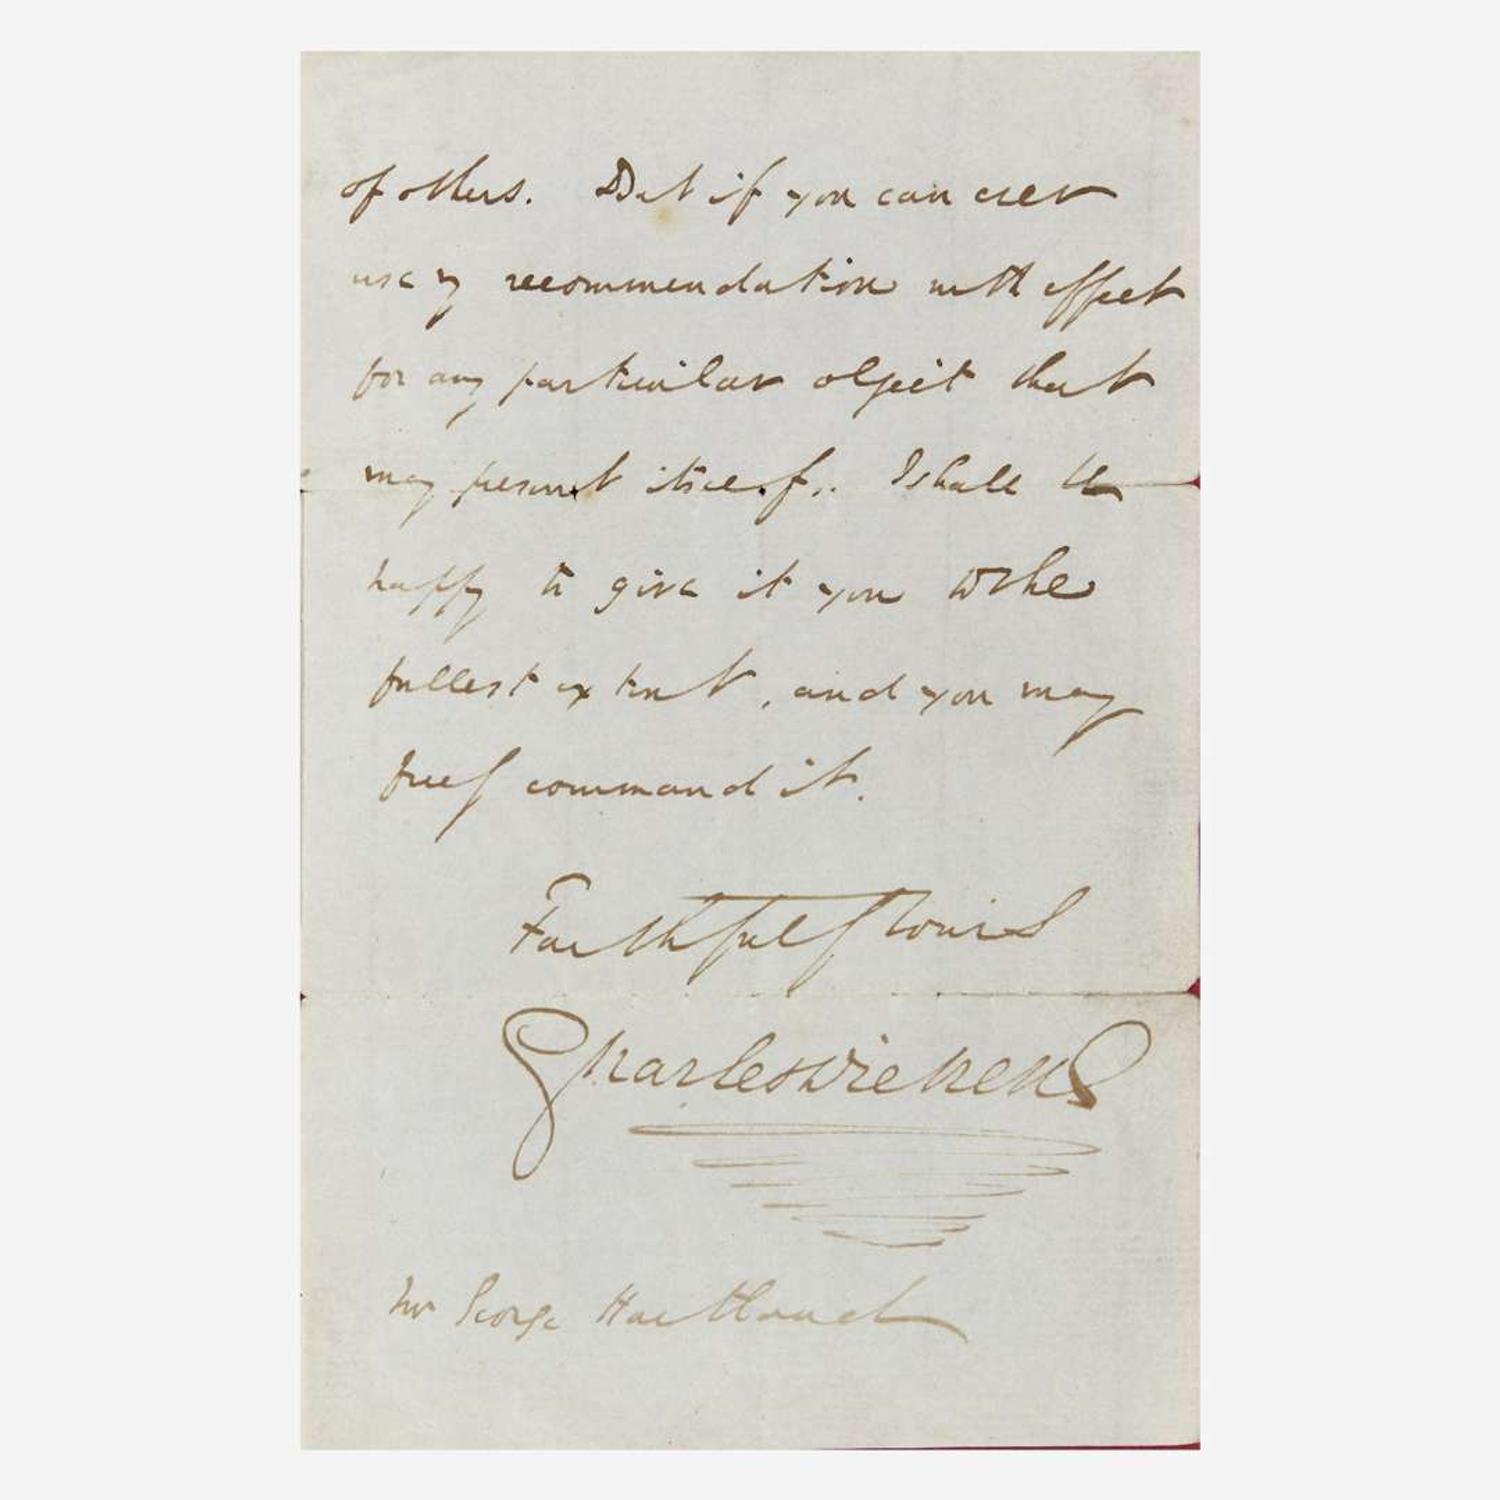 of others. But if you can ever
use my recommendation with effect
for any particular object that
may present itself, I shall be
happy to give it you to the
fullest extent, and you may
freely command it.
Faithfully Yours
Charles Dickens
Mr George